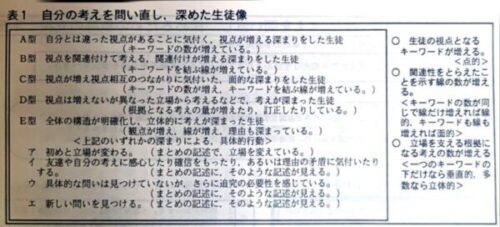 表１　自分の考えを問い直し、深めた生徒像
Ａ型　自分とは違った視点があることに気付く、視点が増える深まりをした生徒
（キーワードの数が増えている。）
Ｂ型　視点を関連付けて考える、関連付けが増える深まりをした生徒
（キーワードを結ぶ線が増えている。）
Ｃ型　視点が増え視点相互のつながりに気付いた、面的な深まりをした生徒
（キーワードの数が増え、キーワードを結ぶ線が増えている。）
Ｄ型　視点は増えないが異なった立場から考えるなどで、考えが深まった生徒
（根拠となる考えの量が増えたり、訂正したりしている。）
Ｅ型　全体の構造が明確化し、立体的に考えが深まった生徒
（観点が増え、線が増え、理由も深まっている。）
＜上記のいずれかの深まりによる、具体的行動＞
ア　初めと立場が変わる。（まとめの記述で、立場を変えている。）
イ　友達や自分の考えに感心したり確信をもったり、あるいは理由の矛盾に気付いたりする。（まとめの記述に、そのような記述が見える。）
ウ　具体的な問いは見つけていないが、さらに追究の必要性を感じている。
（まとめの記述に、そのような記述が見える。）
エ　新しい問いを見つける。（まとめの記述に、そのような記述が見える。）
○　生徒の視点となる
キーワードが増える。
＜点的＞
○　関連性をとらえたこ
とを示す線の数が増え
る。
＜キーワードの数が同
じで線だけ増えれば線
的、キーワードも線も
増えれば面的＞
○　立場を支える根拠に
なる考えの数が増える
＜一つのキーワードの
下だけなら垂直的、多
数なら立体的＞